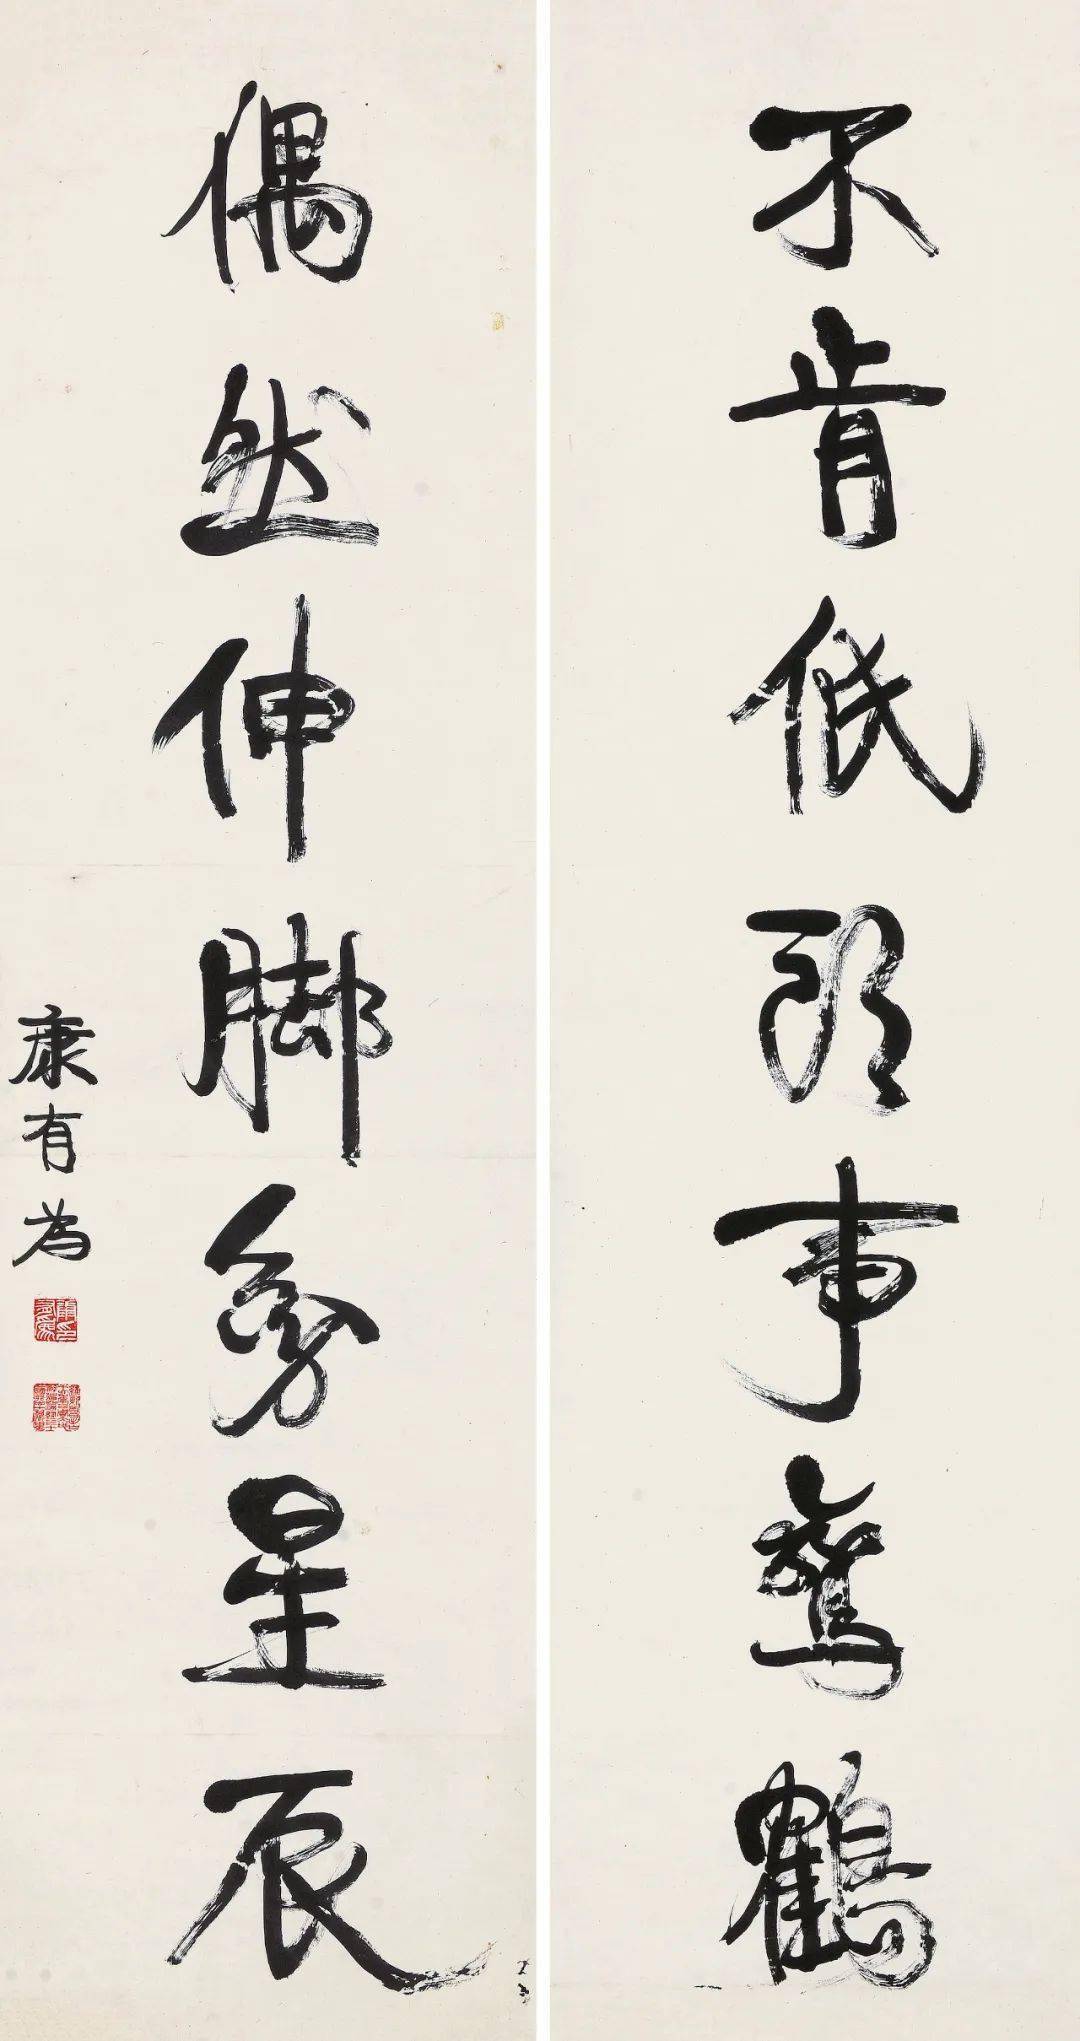 不肯低頭事鸞鶴
偶然伸脚星辰
康有為
康有為印